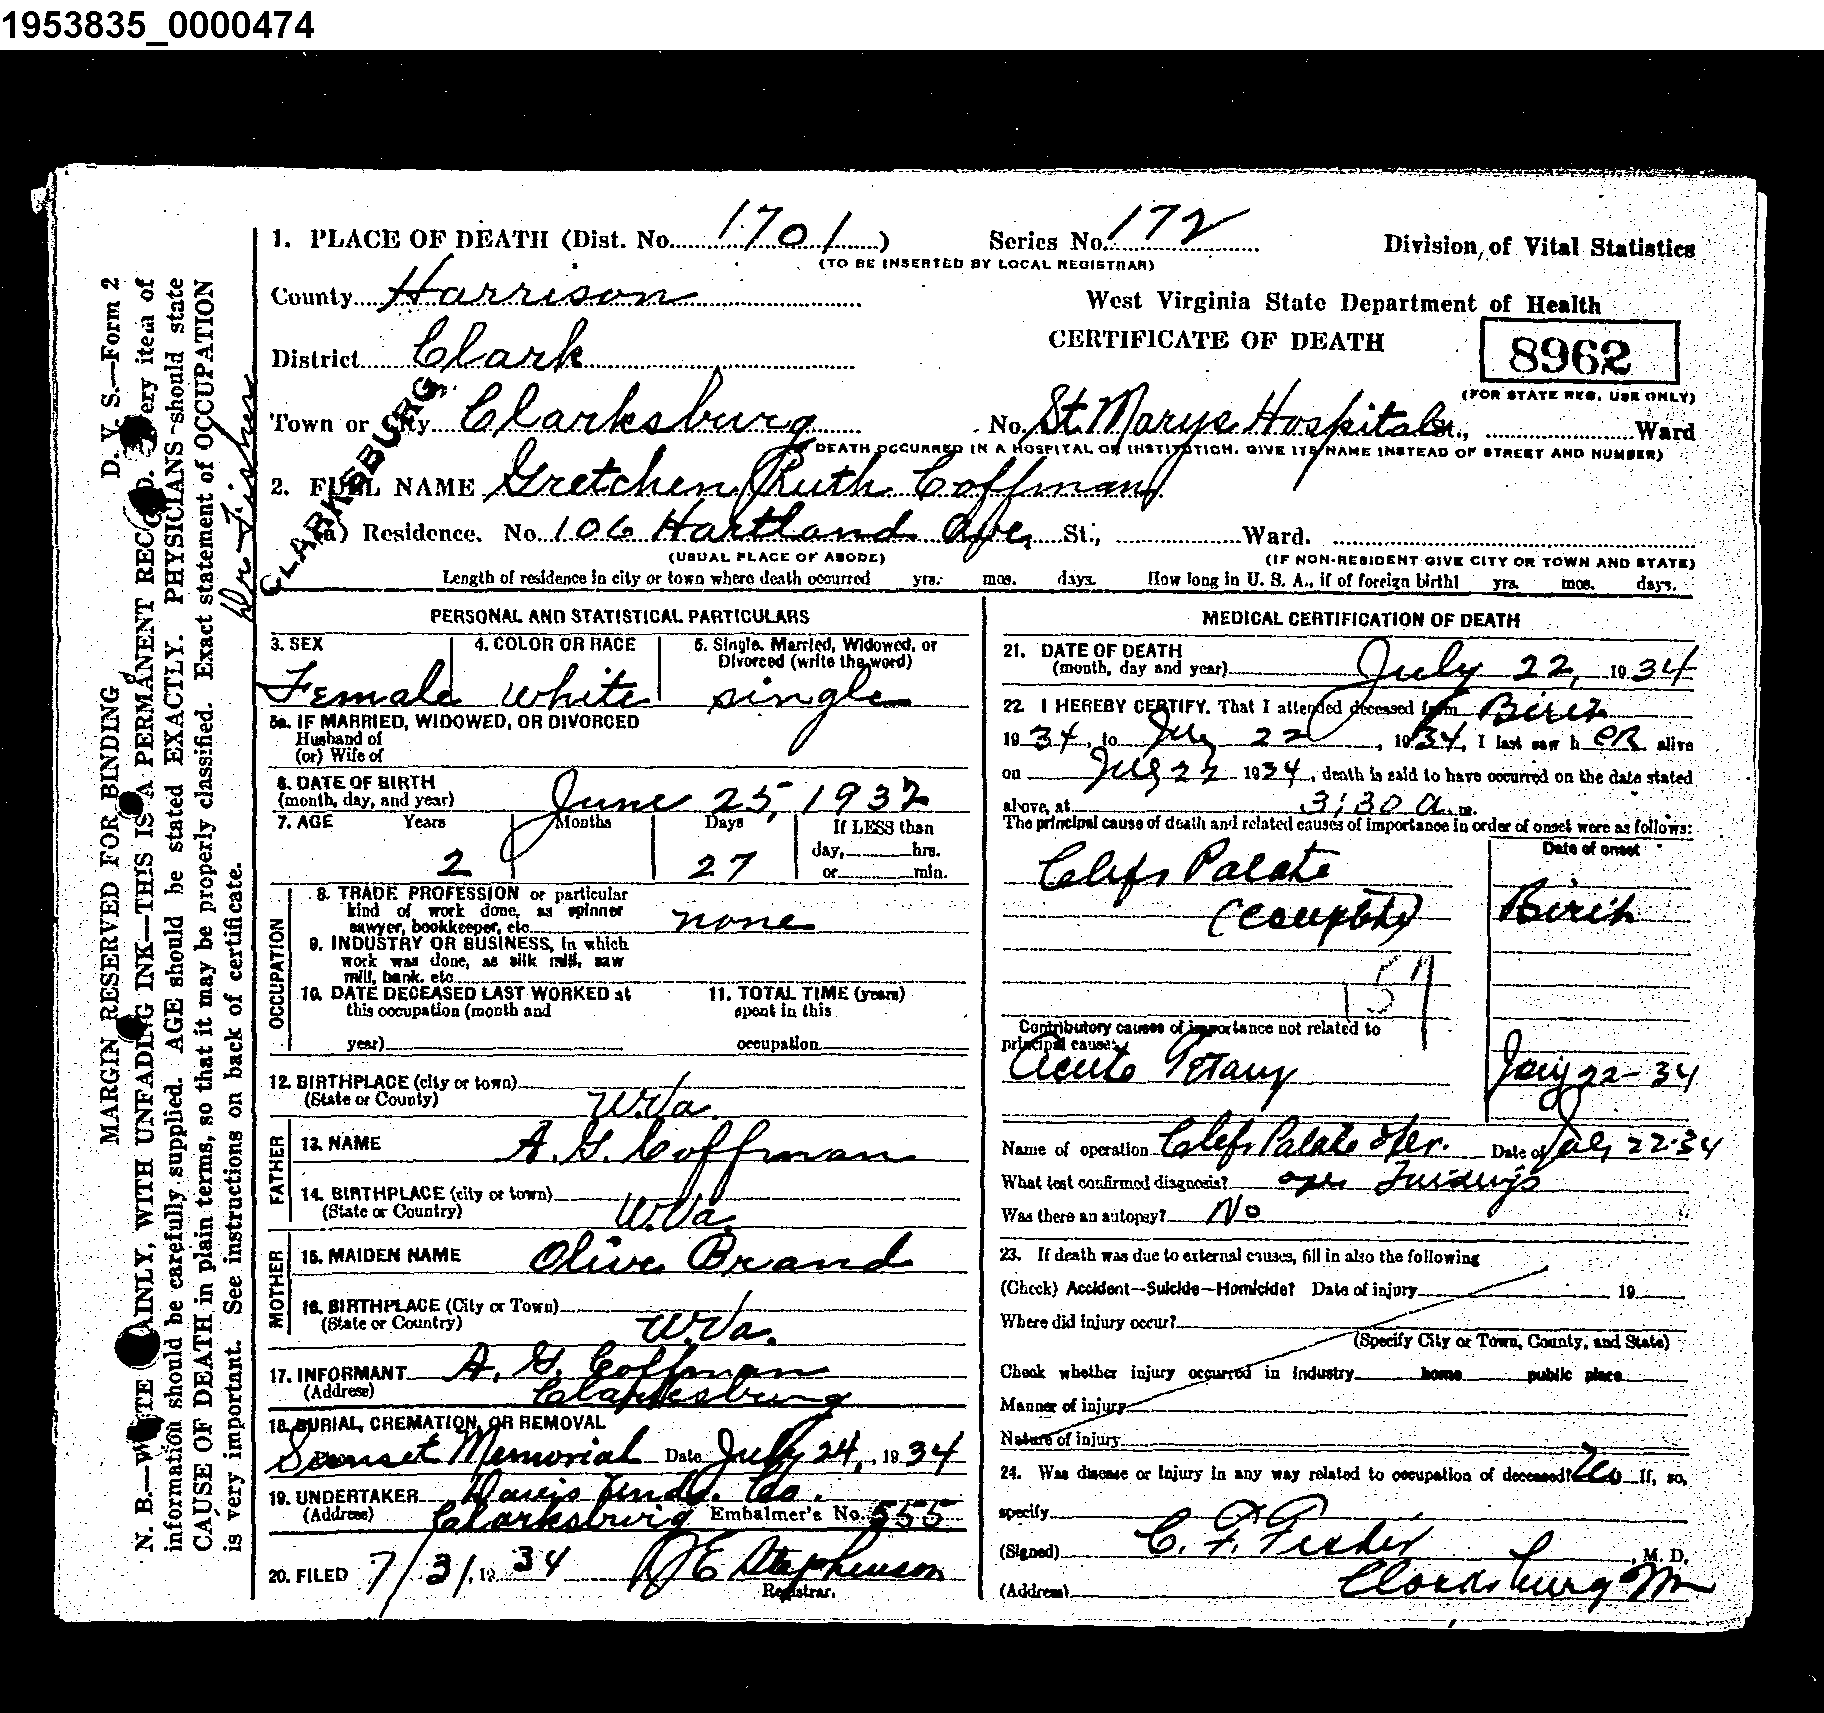 1953835_0000474
1. PLACE OF DEATH (Dist. No. 1701) Series No. 172 Division of Vital Statistics
(TO BE INSERTED BY LOCAL REGISTRAR)
County Harrison West Virginia State Department of Health
District Clark CERTIFICATE OF DEATH 8962
(FOR STATE REG. USE ONLY)
Town or City Clarksburg No. St. Marys Hospital St., Ward
DEATH OCCURRED IN A HOSPITAL OR INSTITUTION, GIVE ITS NAME INSTEAD OF STREET AND NUMBER)
CLARKSBURG
2. FULL NAME Gretchen Ruth Coffman
(a) Residence. No. 106 Hartland Ave. St., Ward.
(USUAL PLACE OF ABODE) (IF NON-RESIDENT GIVE CITY OR TOWN AND STATE)
Length of residence in city or town where death occurred yrs. mos. days. How long in U. S. A., if of foreign birth? yrs. mos. days.
PERSONAL AND STATISTICAL PARTICULARS
3. SEX 4. COLOR OR RACE 5. Single, Married, Widowed, or
Divorced (write the word)
Female white single
5a. IF MARRIED, WIDOWED, OR DIVORCED
Husband of
(or) Wife of
6. DATE OF BIRTH
(month, day, and year) June 25, 1932
7. AGE Years Months Days If LESS than
day, hrs.
2 27 or min.
OCCUPATION
8. TRADE PROFESSION or particular
kind of work done, as spinner
sawyer, bookkeeper, etc. none
9. INDUSTRY OR BUSINESS, in which
work was done, as silk mill, saw
mill, bank, etc.
10. DATE DECEASED LAST WORKED at 11. TOTAL TIME (years)
this occupation (month and spent in this
year) occupation
12. BIRTHPLACE (city or town)
(State or County) W.Va.
FATHER
13. NAME A. G. Coffman
14. BIRTHPLACE (city or town)
(State or Country) W.Va.
MOTHER
15. MAIDEN NAME Olive Brand
16. BIRTHPLACE (City or Town)
(State or Country) W.Va.
17. INFORMANT A. G. Coffman
(Address) Clarksburg
18. BURIAL, CREMATION, OR REMOVAL
Sunset Memorial Date July 24, 1934
19. UNDERTAKER Davis Co.
(Address) Clarksburg Embalmer's No. 555
20. FILED 7/31, 1934 Stephenson
Registrar.
MEDICAL CERTIFICATION OF DEATH
21. DATE OF DEATH
(month, day and year) July 22, 1934
22. I HEREBY CERTIFY, That I attended deceased from Birth
1934, to July 22, 1934, I last saw her alive
on July 22 1934, death is said to have occurred on the date stated
above, at 3:30 a.m.
The principal cause of death and related causes of importance in order of onset were as follows:
Date of onset
Cleft Palate
(Complete) Birth
157
Contributory causes of importance not related to
principal cause:
Acute Tetany July 22-34
Name of operation Cleft Palate Oper. Date of July 22-34
What test confirmed diagnosis?
Was there an autopsy? No
23. If death was due to external causes, fill in also the following
(Check) Accident—Suicide—Homicide? Date of injury 19
Where did injury occur?
(Specify City or Town, County, and State)
Check whether injury occurred in industry home public place
Manner of injury
Nature of injury
24. Was disease or injury in any way related to occupation of deceased? No If, so,
specify
(Signed) C. F. Fisher, M. D.
(Address) Clarksburg
D. V. S.—Form 2
MARGIN RESERVED FOR BINDING
N. B.—WRITE PLAINLY, WITH UNFADING INK—THIS IS A PERMANENT RECORD. Every item of
information should be carefully supplied. AGE should be stated EXACTLY. PHYSICIANS should state
CAUSE OF DEATH in plain terms, so that it may be properly classified. Exact statement of OCCUPATION
is very important. See instructions on back of certificate.
Dr. Fisher